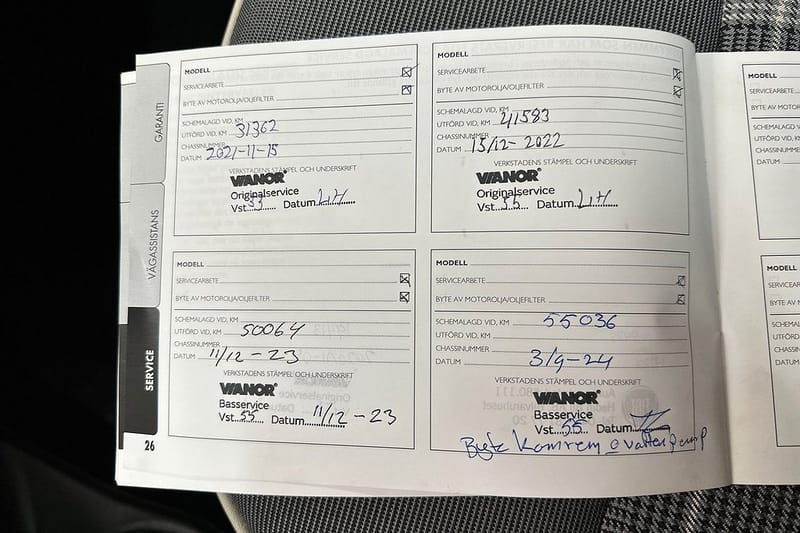 GARANTI
VÄGASSISTANS
SERVICE
26
MODELL
SERVICEARBETE
BYTE AV MOTOROLJA/OLJEFILTER
SCHEMALAGD VID, KM
UTFÖRD VID, KM 31362
CHASSINUMMER
DATUM 2021-11-15
VERKSTADENS STÄMPEL OCH UNDERSKRIFT
VIANOR
Originalservice
Vst. 55 Datum LiH
MODELL
SERVICEARBETE
BYTE AV MOTOROLJA/OLJEFILTER
SCHEMALAGD VID, KM
UTFÖRD VID, KM 41583
CHASSINUMMER
DATUM 15/12-2022
VERKSTADENS STÄMPEL OCH UNDERSKRIFT
VIANOR
Originalservice
Vst. 55 Datum LiH
MODELL
SERVICEARBETE
BYTE AV MOTOROLJA/OLJEFILTER
SCHEMALAGD VID, KM
UTFÖRD VID, KM 50064
CHASSINUMMER
DATUM 11/12-23
VERKSTADENS STÄMPEL OCH UNDERSKRIFT
VIANOR
Basservice
Vst. 55 Datum 11/12-23
MODELL
SERVICEARBETE
BYTE AV MOTOROLJA/OLJEFILTER
SCHEMALAGD VID, KM 55036
UTFÖRD VID, KM
CHASSINUMMER
DATUM 3/9-24
VERKSTADENS STÄMPEL OCH UNDERSKRIFT
VIANOR
Basservice
Vst. 55 Datum
Byte Kamrem o vattenpump
MODELL
SERVICEARBE
BYTE AV MO
SCHEMALAGD
UTFÖRD VID, K
CHASSINUMM
DATUM
MODELL
SERVICEAR
BYTE AV M
SCHEMALA
UTFÖRD VI
CHASSINUM
DATUM